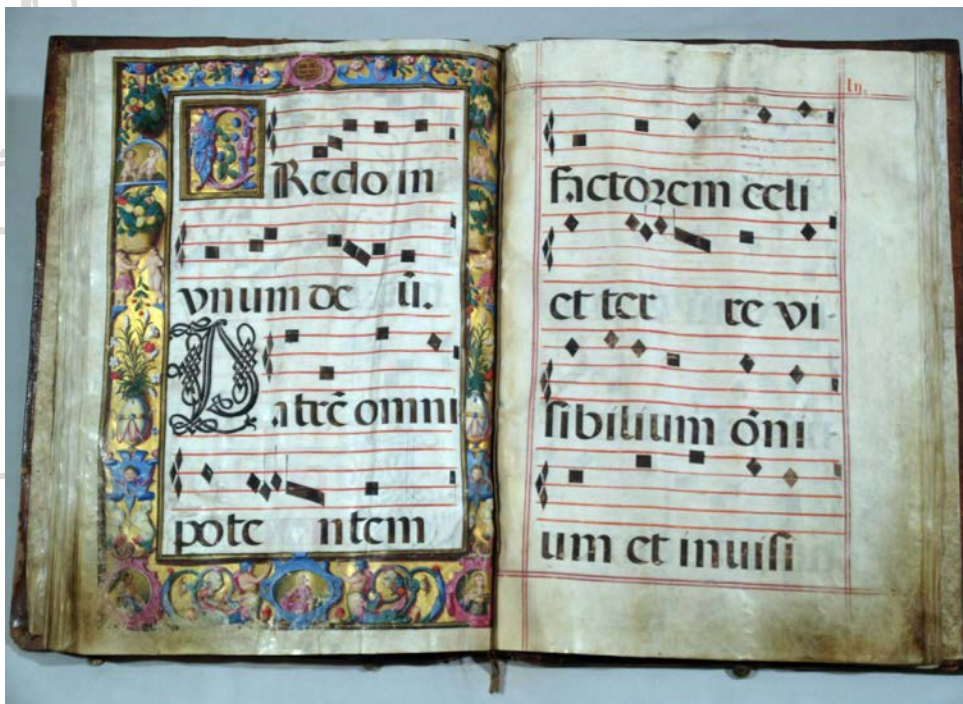 CRedo in
vnum de ū.
Patrē omni
pote ntem
factorem celi
et ter re vi
sibilium ōni
um et inuisi